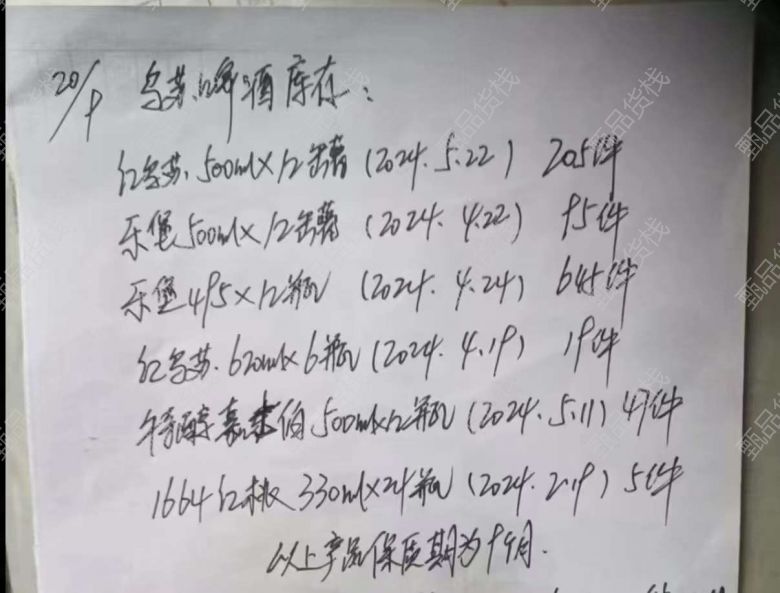 20/9 乌苏啤酒库存：
红乌苏.500ml×12罐 (2024.5.22) 205件
乐堡500ml×12罐 (2024.4.22) 95件
乐堡495×12瓶 (2024.4.24) 645件
红乌苏.620ml×6瓶 (2024.4.19) 19件
特醇嘉士伯500ml×12瓶 (2024.5.11) 47件
1664红桃330ml×24瓶 (2024.2.19) 5件
以上产品保质期为9个月.
甄品货栈